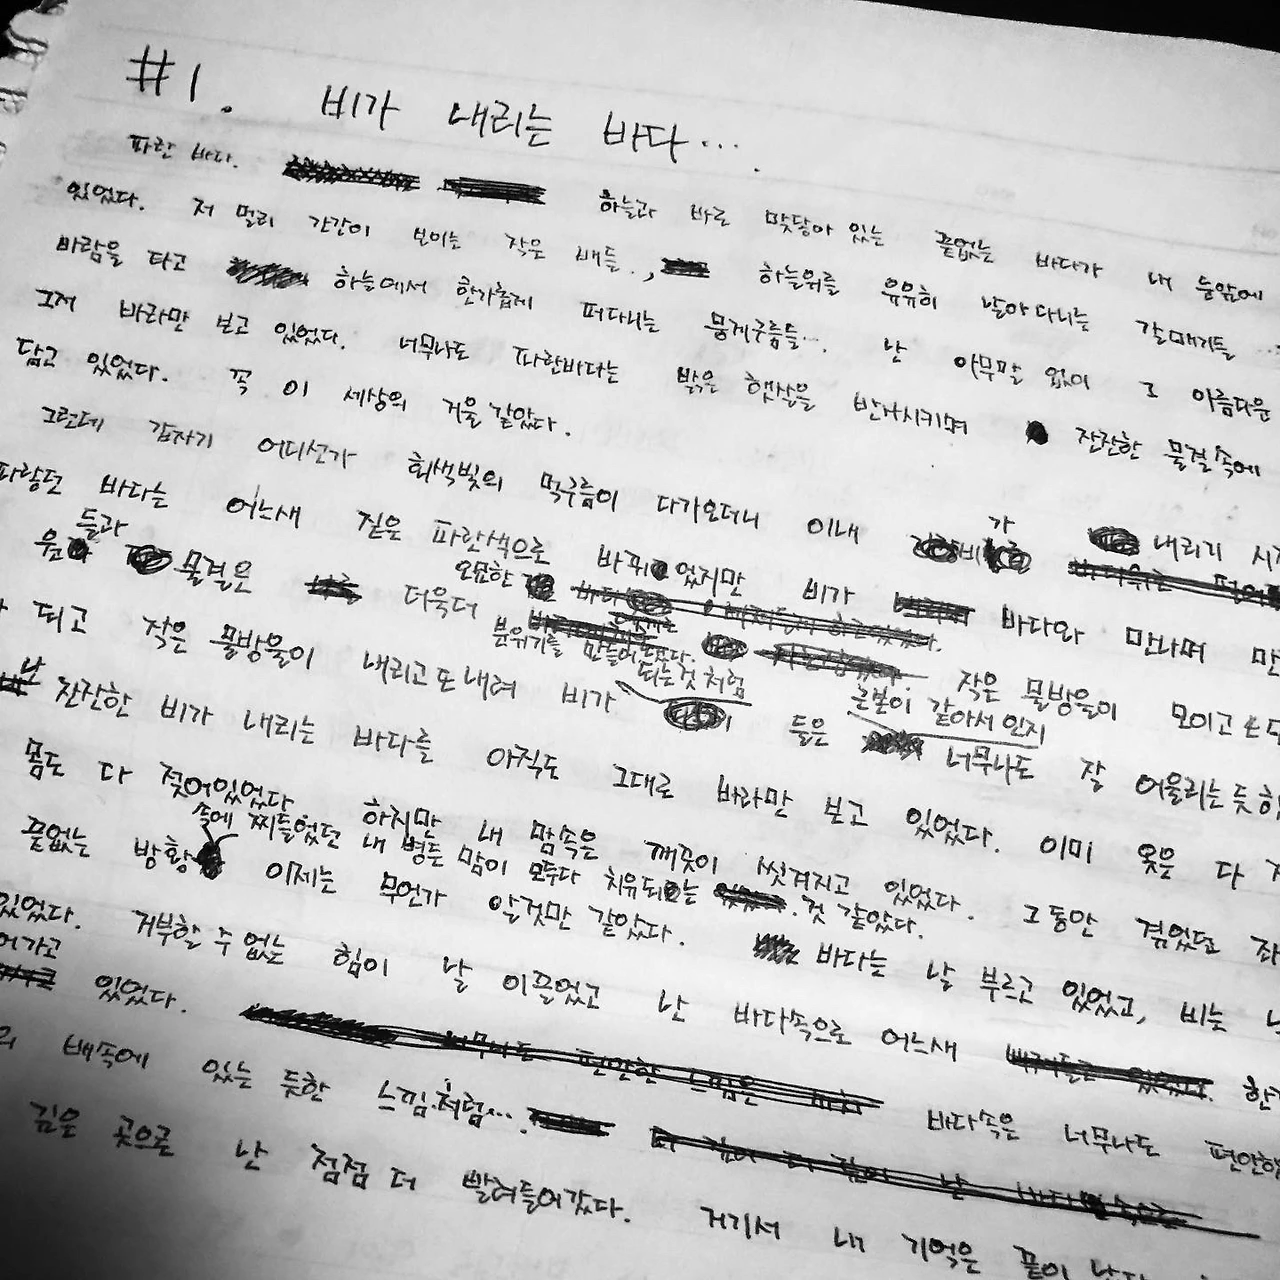 #1. 비가 내리는 바다...
파란 바다. 하늘과 바로 맞닿아 있는 끝없는 바다가 내 눈앞에
있었다. 저 멀리 간간이 보이는 작은 배들.., 하늘위를 유유히 날아다니는 갈매기들...
바람을 타고 하늘에서 한가롭게 떠다니는 뭉게구름들... 난 아무말 없이 그 아름다운
그저 바라만 보고 있었다. 너무나도 파란바다는 밝은 햇살을 반사시키며 잔잔한 물결속에
담고 있었다. 꼭 이 세상의 거울 같았다.
그런데 갑자기 어디선가 회색빛의 먹구름이 다가오더니 이내 비가 내리기
파랗던 바다는 어느새 짙은 파란색으로 바뀌었지만 비가 바다와 만나며
들과 물결은 더욱더 오묘한 분위기를 만들어 작은 물방울이 모이고 또
되고 작은 물방울이 내리고 또 내려 비가 되는것 처럼 들은 근본이 같아서 인지 너무나도 잘 어울리는 듯
잔잔한 비가 내리는 바다를 아직도 그대로 바라만 보고 있었다. 이미 옷은 다
몸도 다 젖어있었다 하지만 내 맘속은 깨끗이 씻겨지고 있었다. 그동안 겪었던
끝없는 방황 속에 찌들었던 내 병든 맘이 모두다 치유되는 것 같았다.
이제는 무언가 알것만 같았다. 바다는 날 부르고 있었고, 비는
있었다. 거부할 수 없는 힘이 날 이끌었고 난 바다속으로 어느새
있었다. 바다속은 너무나도
배속에 있는 듯한 느낌.처럼....
깊은 곳으로 난 점점 더 빨려들어갔다. 거기서 내 기억은 끝이